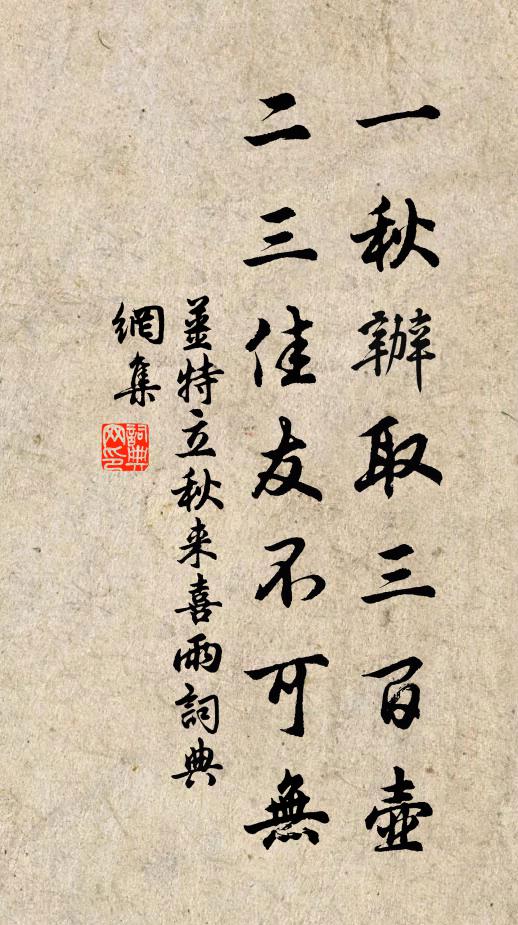 一秋辦取三百壺
二三佳友不可無
姜特立秋来喜雨詞典
網集
詞典网印